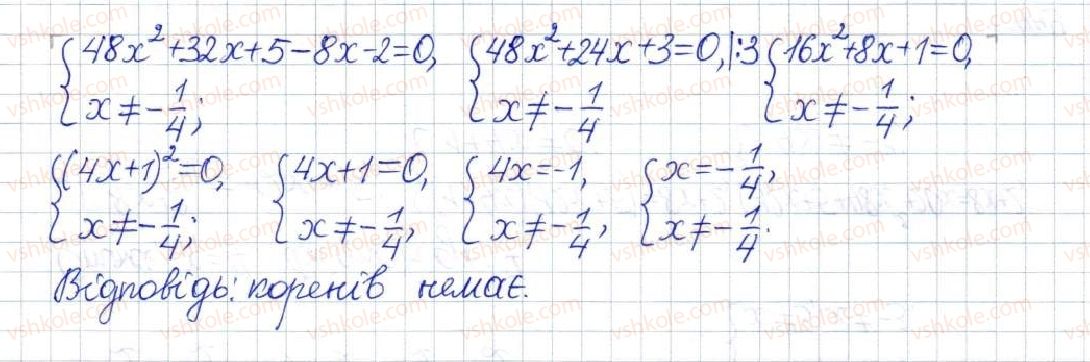 {48x²+32x+5-8x-2=0, x≠-1/4; {48x²+24x+3=0,|:3 x≠-1/4 {16x²+8x+1=0, x≠-1/4;
{(4x+1)²=0, x≠-1/4; {4x+1=0, x≠-1/4, {4x=-1, x≠-1/4, {x=-1/4, x≠-1/4.
Відповідь: коренів немає.